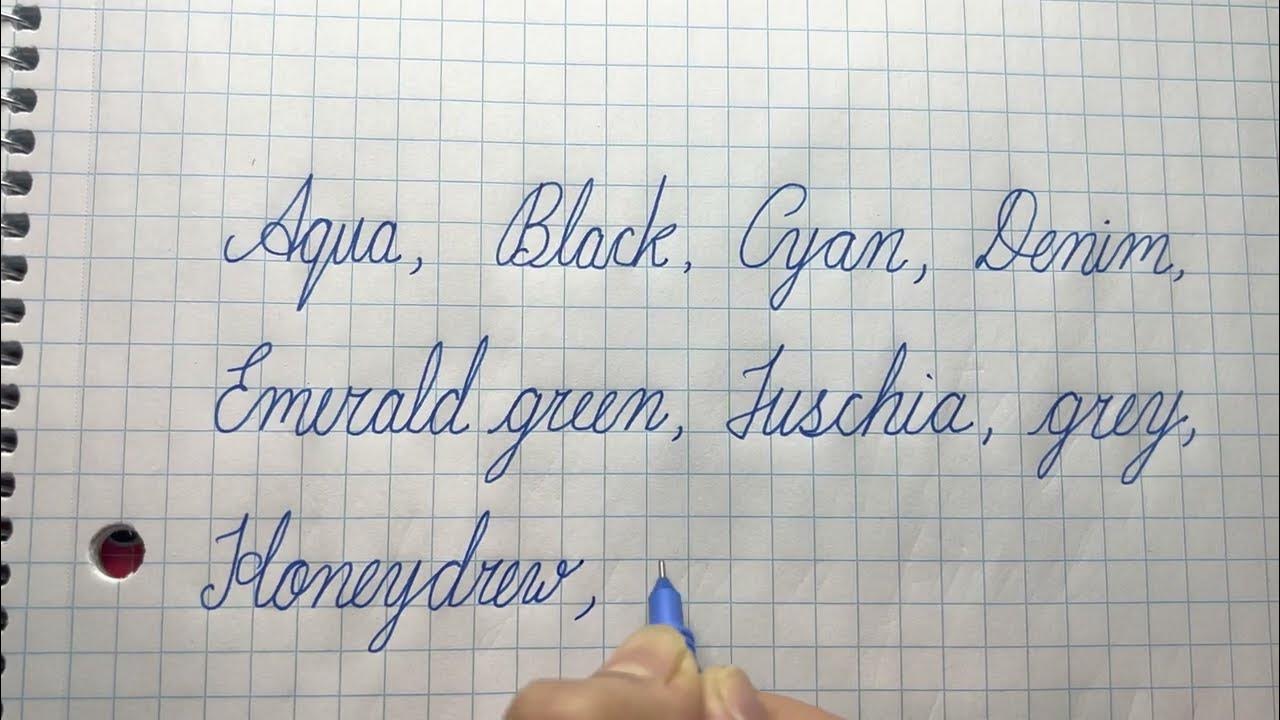 Aqua, Black, Cyan, Denim,
Emerald green, Fuschia, grey,
Honeydrew,